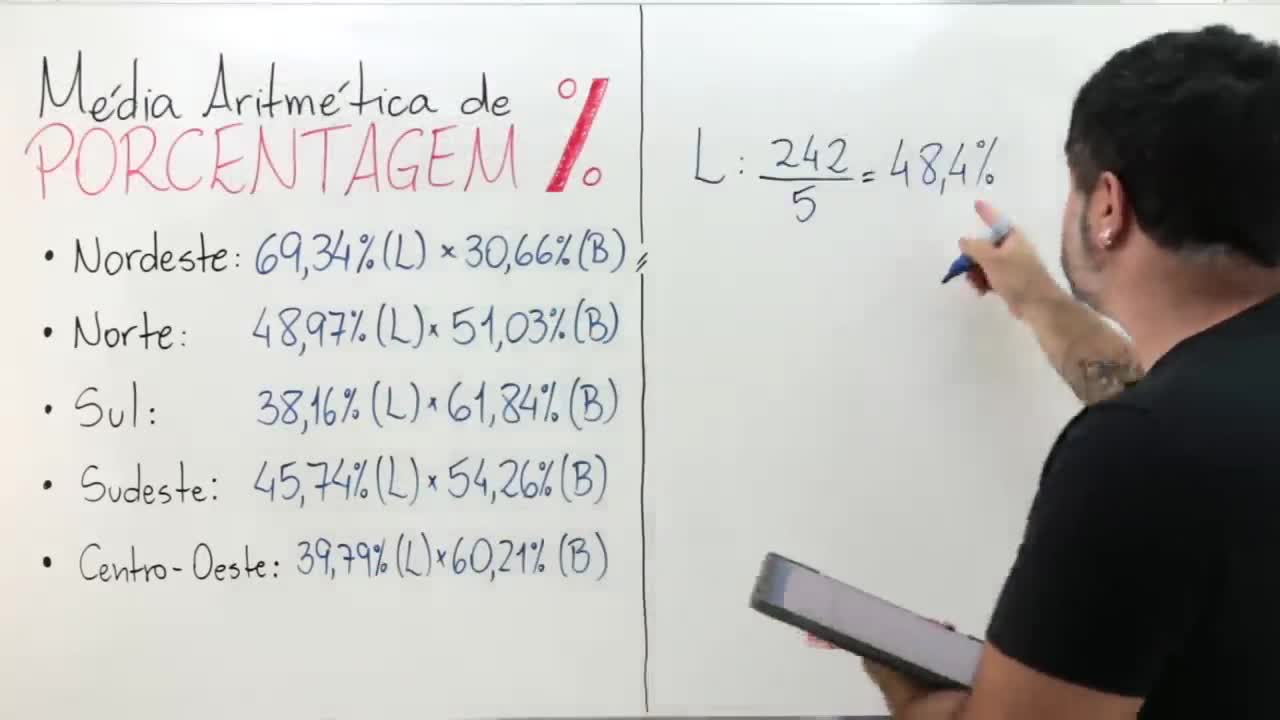 Média Aritmética de
PORCENTAGEM %
• Nordeste: 69,34% (L) × 30,66% (B)
• Norte: 48,97% (L) × 51,03% (B)
• Sul: 38,16% (L) × 61,84% (B)
• Sudeste: 45,74% (L) × 54,26% (B)
• Centro-Oeste: 39,79% (L) × 60,21% (B)
L: 242/5 = 48,4%